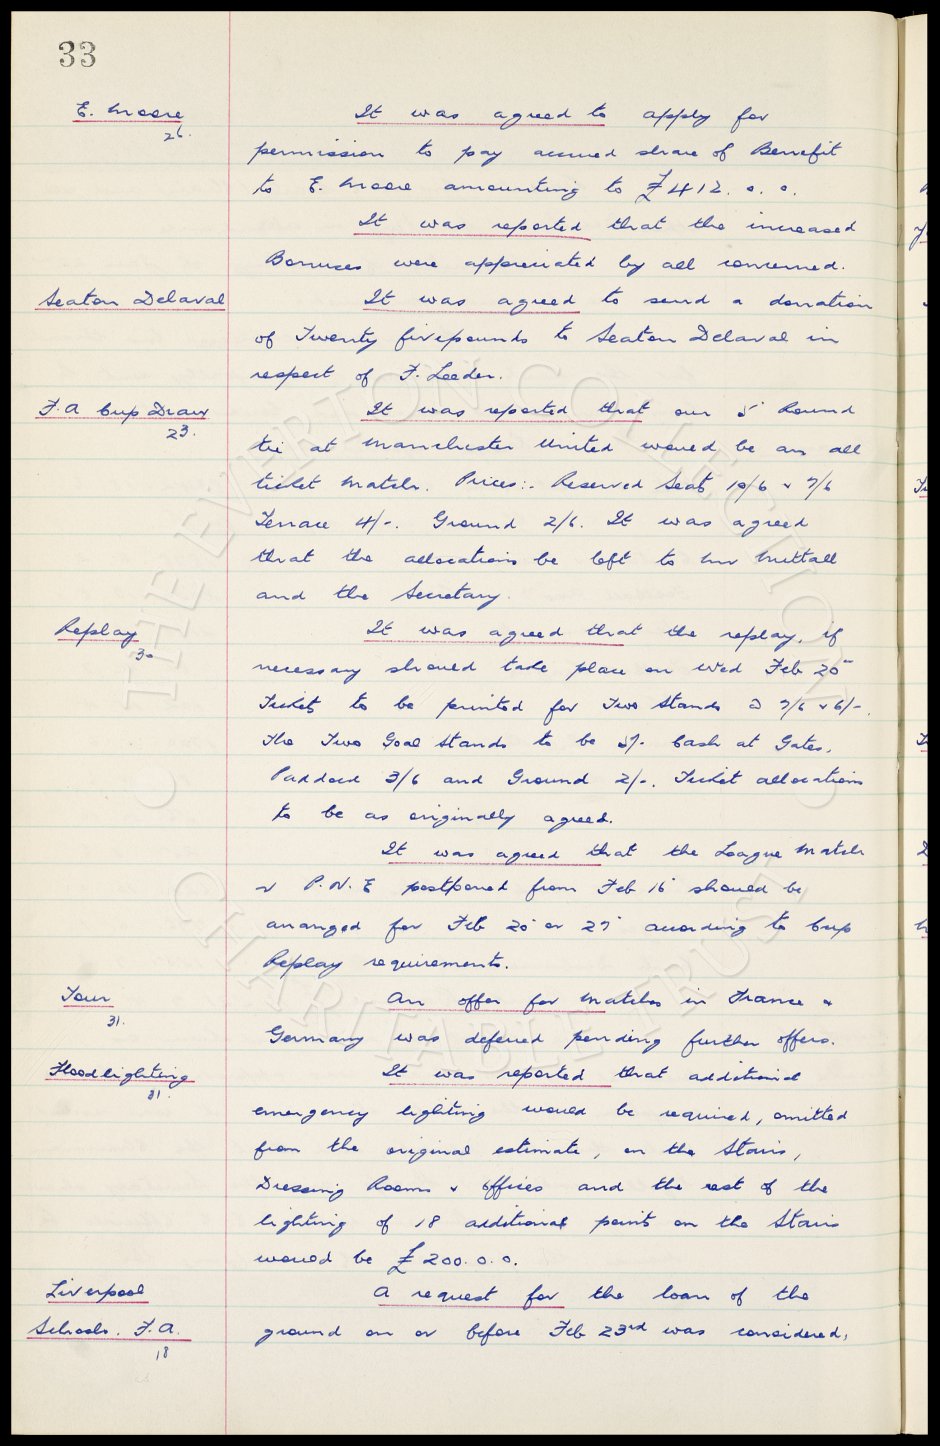 33
E. Moore
26.
It was agreed to apply for
permission to pay accrued share of Benefit
to E. Moore amounting to £412. 0. 0.
It was reported that the increased
Bonuses were appreciated by all concerned.
Seaton Delaval
It was agreed to send a donation
of Twenty five pounds to Seaton Delaval in
respect of F. Leeder.
F.A Cup Draw
23.
It was reported that our 5" Round
tie at Manchester United would be an all
ticket match. Prices:- Reserved Seats 10/6 & 7/6
Terrace 4/-. Ground 2/6. It was agreed
that the allocations be left to Mr Nuttall
and the Secretary.
Replay
30
It was agreed that the replay, if
necessary should take place on Wed Feb 20"
Tickets to be printed for Two Stands @ 7/6 & 6/-.
The Two Goal Stands to be 5/- Cash at Gates,
Paddock 3/6 and Ground 2/-. Ticket allocations
to be as originally agreed.
It was agreed that the League Match
v P.N.E postponed from Feb 16" should be
arranged for Feb 20" or 27" according to Cup
Replay requirements.
Tour
31.
An offer for matches in France &
Germany was deferred pending further offers.
Floodlighting
31.
It was reported that additional
emergency lighting would be required, omitted
from the original estimate, on the Stairs,
Dressing Rooms & Offices and the cost of the
lighting of 18 additional points on the Stairs
would be £200. 0. 0.
Liverpool
Schools. F.A.
18
A request for the loan of the
ground on or before Feb 23rd was considered,
© THE EVERTON COLLECTION
CHARITABLE TRUST